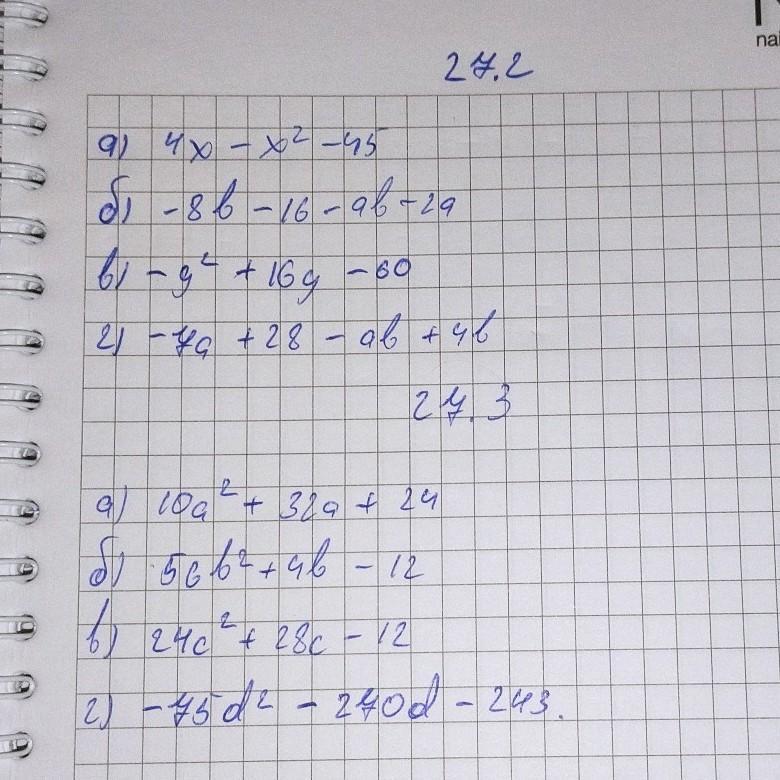 27.2
а) 4x - x² - 45
б) -8b - 16 - ab - 2a
в) -y² + 16y - 60
г) -7a + 28 - ab + 4b
27.3
а) 10a² + 32a + 24
б) 56b² + 4b - 12
в) 24c² + 28c - 12
г) -75d² - 270d - 243.